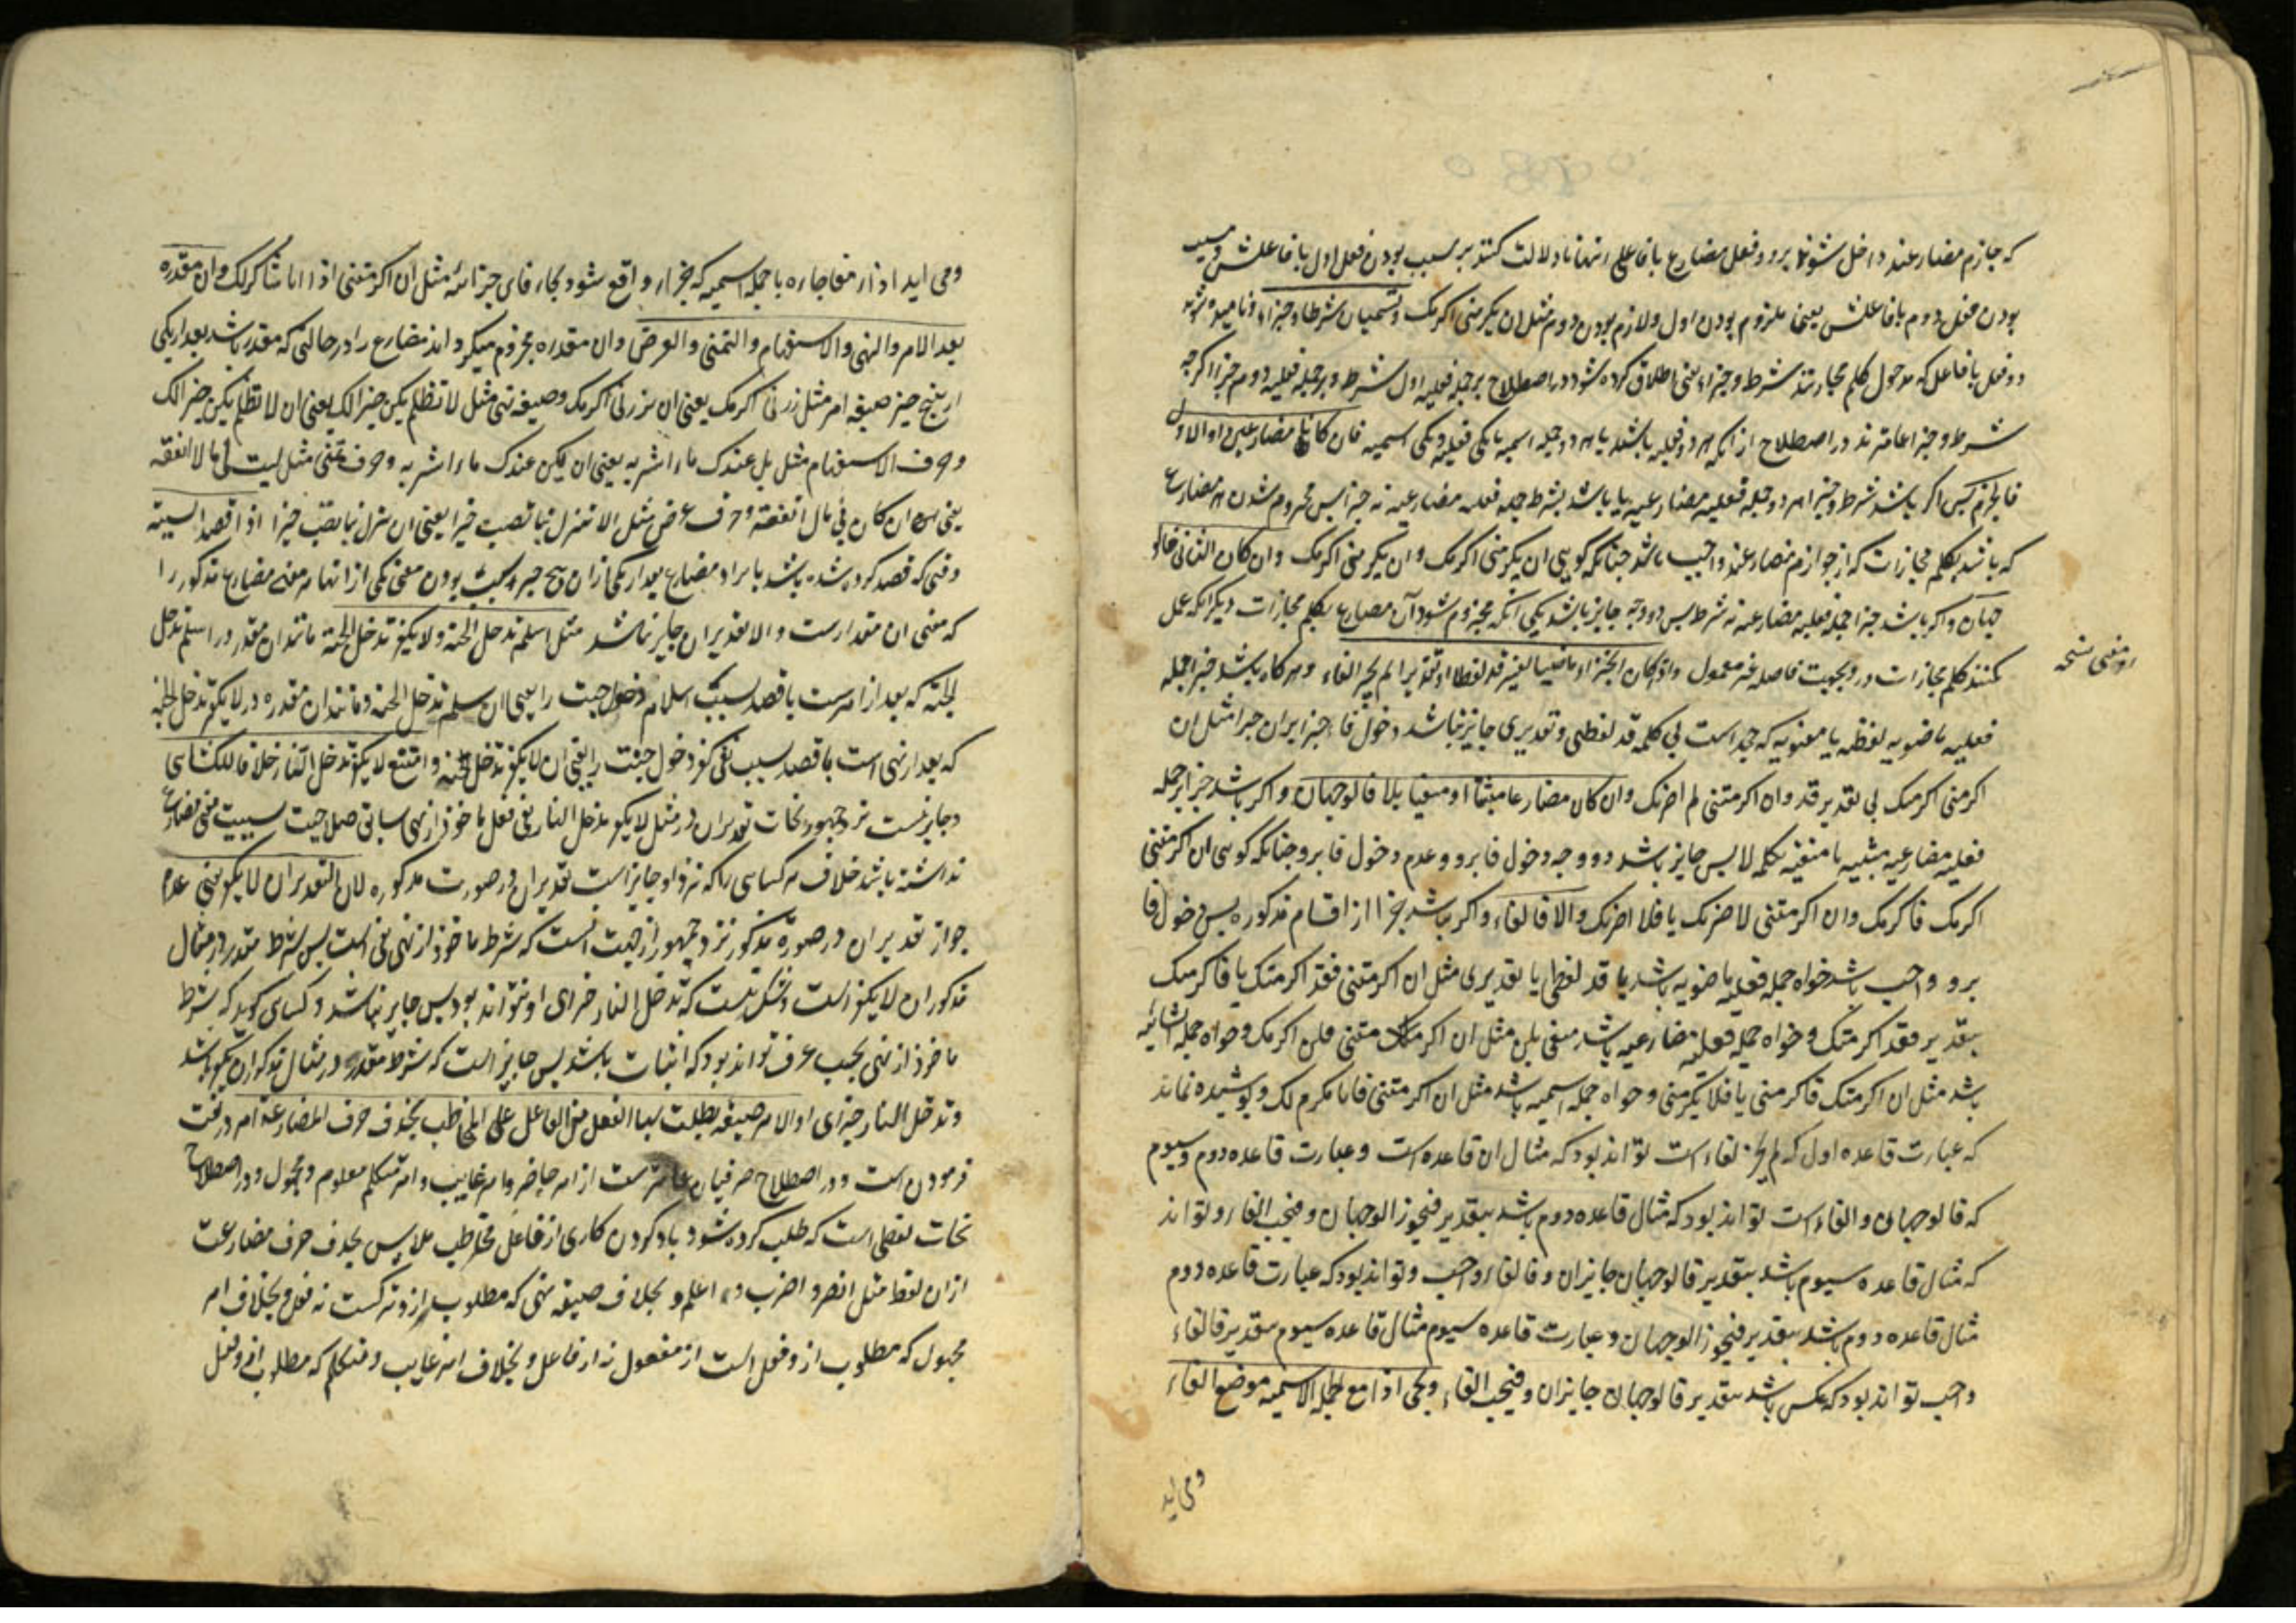 که جازم مضارعند داخل شوند برد و فعل مضارع با فاعل انها تا دلالت کنند بر سبب بودن فعل اول با فاعلش و مسبب
بودن فعل دوم با فاعلش یعنی ملزوم بودن اول و لازم بودن دوم مثل ان یکرمنی اکرمک و تسمیان شرطا و جزاء و نامیده شود
دو فعل با فاعل که مدخول کلم مجازاتند شرط و جزاء یعنی اطلاق کرده شود در اصطلاح بر جمله فعلیه اول شرط و بر جمله فعلیه دوم جزا اکرچه
شرط و جزا عامترند در اصطلاح از انکه هر دو فعلیه باشند یا هر دو جمله اسمیه یا یکی فعلیه و یکی اسمیه فان کانا مضارعین او الاول
فالجزم پس اکر باشند شرط و جزا هر دو جمله فعلیه مضارعیه یا باشد شرط جمله فعلیه مضارعیه نه جزا پس مجزوم شدن هر مضارع
که باشد بکلم مجازات که از جوازم مضارعند واجب باشد چنانکه کویی ان یکرمنی اکرمک و ان یکرمنی اکرمک و ان کان الثانی فالو
جهان و اکر باشد جزا جمله فعلیه مضارعیه نه شرط پس دو وجه جایز باشد یکی انکه مجزوم شود آن مضارع بکلم مجازات دیکر انکه عمل
نکنند کلم مجازات در و بجهت فاصله غیر معمول و اذا کان الجزاء ماضیا بغیر قد لفظا او تقدیرا لم یجز الفاء و هرکاه باشد جزا جمله
فعلیه ماضویه لفظیه یا معنویه که جحد است بی کلمه قد لفظی و تقدیری جایز نباشد دخول فاء جزا بران جزا مثل ان
اکرمتنی اکرمتک بی تقدیر قد و ان اکرمتنی لم اضربک و ان کان مضارعا مثبتا او منفیا بلا فالوجهان و اکر باشد جزا جمله
فعلیه مضارعیه مثبته یا منفیه بکلمه لا پس جایز باشد دو وجه دخول فا برو و عدم دخول فا برو چنانکه کویی ان اکرمتنی
اکرمک فاکرمک و ان اکرمتنی لا اضربک یا فلا اضربک و الا فالفاء و اکر نباشد جزا از اقسام مذکوره پس دخول فا
برو واجب باشد خواه جمله فعلیه ماضویه باشد با قد لفظی یا تقدیری مثل ان اکرمتنی فقد اکرمتک یا فاکرمتک
بتقدیر فقد اکرمتک و خواه جمله فعلیه مضارعیه باشد منفی بلن مثل ان اکرمتنی فلن اکرمک و خواه جمله انشائیه
باشد مثل ان اکرمتک فاکرمنی یا فلا یکرمنی و خواه جمله اسمیه باشد مثل ان اکرمتنی فانا مکرم لک و پوشیده نماند
که عبارت قاعده اول که لم یجز الفاء است تواند بود که مثال ان قاعده است و عبارت قاعده دوم و سیوم
که فالوجهان و الفاء است تواند بود که مثال قاعده دوم باشد بتقدیر فیجوز الوجهان و فیجب الفاء و تواند
که مثال قاعده سیوم باشد بتقدیر فالوجهان جایزان و فالفاء واجب و تواند بود که عبارت قاعده دوم
مثال قاعده دوم باشد بتقدیر فیجوز الوجهان و عبارت قاعده سیوم مثال قاعده سیوم بتقدیر فالفاء
واجب تواند بود که عکس باشد بتقدیر فالوجهان جایزان و فیجب الفاء و یجی اذا مع الجملة الاسمیه موضع الفاء
و می اید
و می اید اذا مفاجاره با جمله اسمیه که جزاء واقع شود بجاء فای جزائیه مثل ان اکرمتنی اذا انا شاکر لک و ان مقدره
بعد الامر و النهی و الاستفهام و التمنی و العرض و ان مقدره مجزوم میکرداند مضارع را در حالتی که مقدر باشد بعد از یکی
از پنج چیز صیغه امر مثل زرنی اکرمک یعنی ان تزرنی اکرمک و صیغه نهی مثل لا تظلم یکن خیرا لک یعنی ان لا تظلم یکن خیرا لک
و حرف الاستفهام مثل هل عندک ماء اشربه یعنی ان یکن عندک ماء اشربه و حرف تمنی مثل لیت لی مالا انفقه
یعنی ان کان لی مال انفقه و حرف عرض مثل الا تنزل بنا تصب خیرا یعنی ان تنزل بنا تصب خیرا اذا قصد السببیة
وقتی که قصد کرده شده باشد بایراد مضارع بعد از یکی ازان پنج چیز سبب بودن معنی یکی از انها مر معنی مضارع مذکور را
که معنی ان مقدار است و الا تقدیر ان جایز نباشد مثل اسلم تدخل الجنة و لا تکفر تدخل الجنة مانند ان مقدر در اسلم تدخل
الجنة که بعد از امر است با قصد سببیت اسلام دخول جنت را یعنی ان تسلم تدخل الجنة و مانند ان مقدره در لا تکفر تدخل الجنة
که بعد از نهی است با قصد سبب نفی کفر دخول جنت را یعنی ان لا تکفر تدخل الجنة و امتنع لا تکفر تدخل النار خلافا للکسائی
و جایز نیست نزد جمهور نحات تقدیر ان در مثل لا تکفر تدخل النار یعنی فعل ماخوذ از نهی سابق صلاحیت سببیت معنی مضارع
نداشته باشد خلاف مر کسائی را که نزد او جایز است تقدیر ان در صورت مذکوره لان التقدیر ان لا تکفر یعنی عدم
جواز تقدیر ان در صورة مذکور نزد جمهور از جهت انست که شرط ماخوذ از نهی نفی است پس شرط مقدر در مثال
مذکور ان لا تکفر است و شک نیست که تدخل النار جزای او نتواند بود پس جایز نباشد و کسائی کوید که شرط
ماخوذ از نهی بحسب عرف تواند بود که اثبات باشد پس جایز است که شرط مقدر در مثال مذکور ان تکفر باشد
و تدخل النار جزای او الامر صیغه یطلب بها الفعل من الفاعل المخاطب بحذف حرف المضارعة امر در لغت
فرمودن است و در اصطلاح صرفیان عامتر است از امر حاضر و امر غایب و امر متکلم معلوم و مجهول و در اصطلاح
نحات لفظی است که طلب کرده شود باد کردن کاری از فاعل مخاطب ملابس بحذف حرف مضارعت
ازان لفظ مثل انصر و اضرب و اعلم و بخلاف صیغه نهی که مطلوب ازو ترکست نه فعل و بخلاف امر
مجهول که مطلوب ازو فعل است از مفعول نه از فاعل و بخلاف امر غایب و متکلم که مطلوب ازو فعل